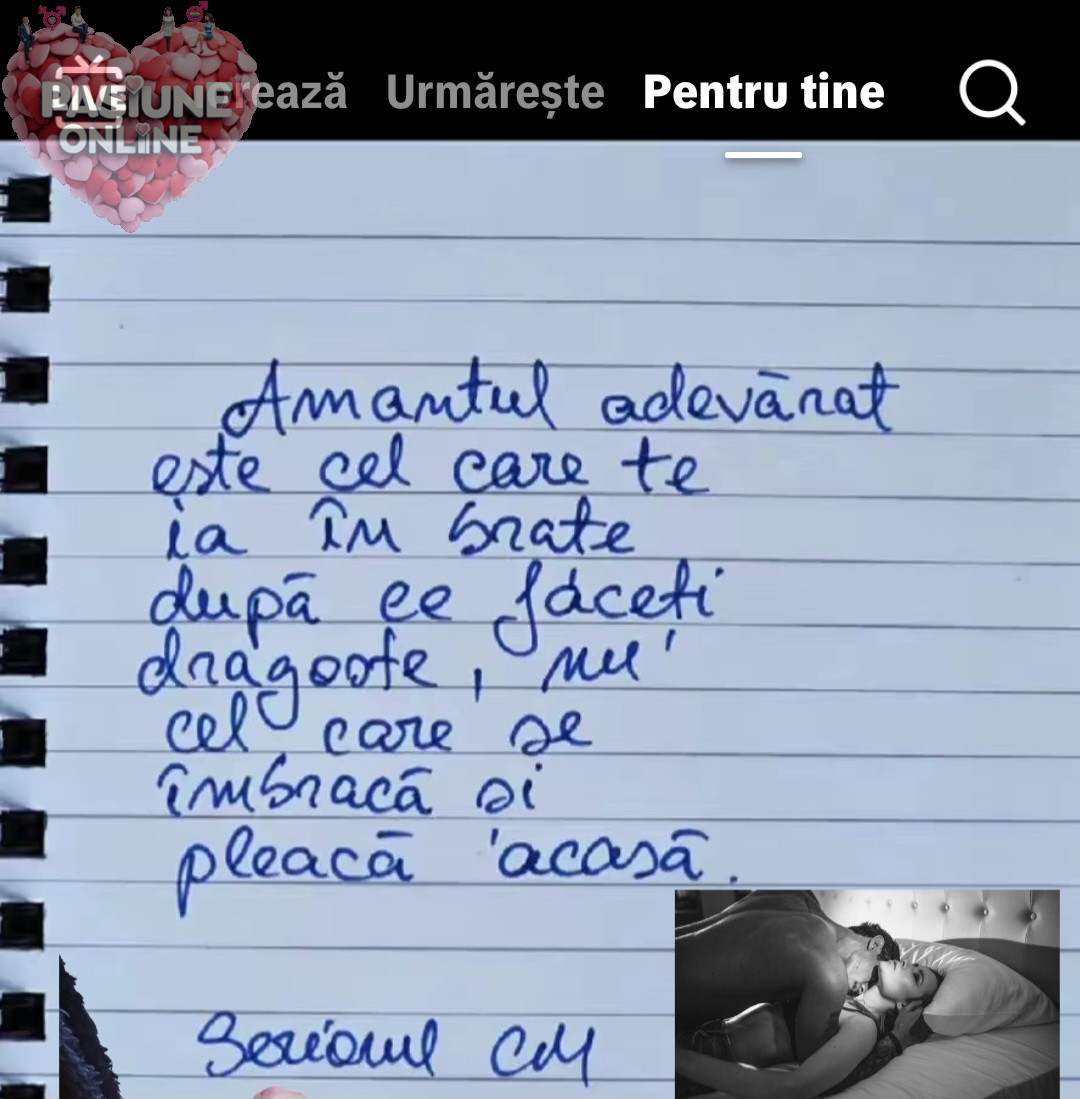 LIVE
PASIUNE
ONLINE
rează Urmărește Pentru tine
Amantul adevărat
este cel care te
ia în brate
după ce faceti
dragoste, nu
cel care se
îmbracă si
pleacă acasă.
CM